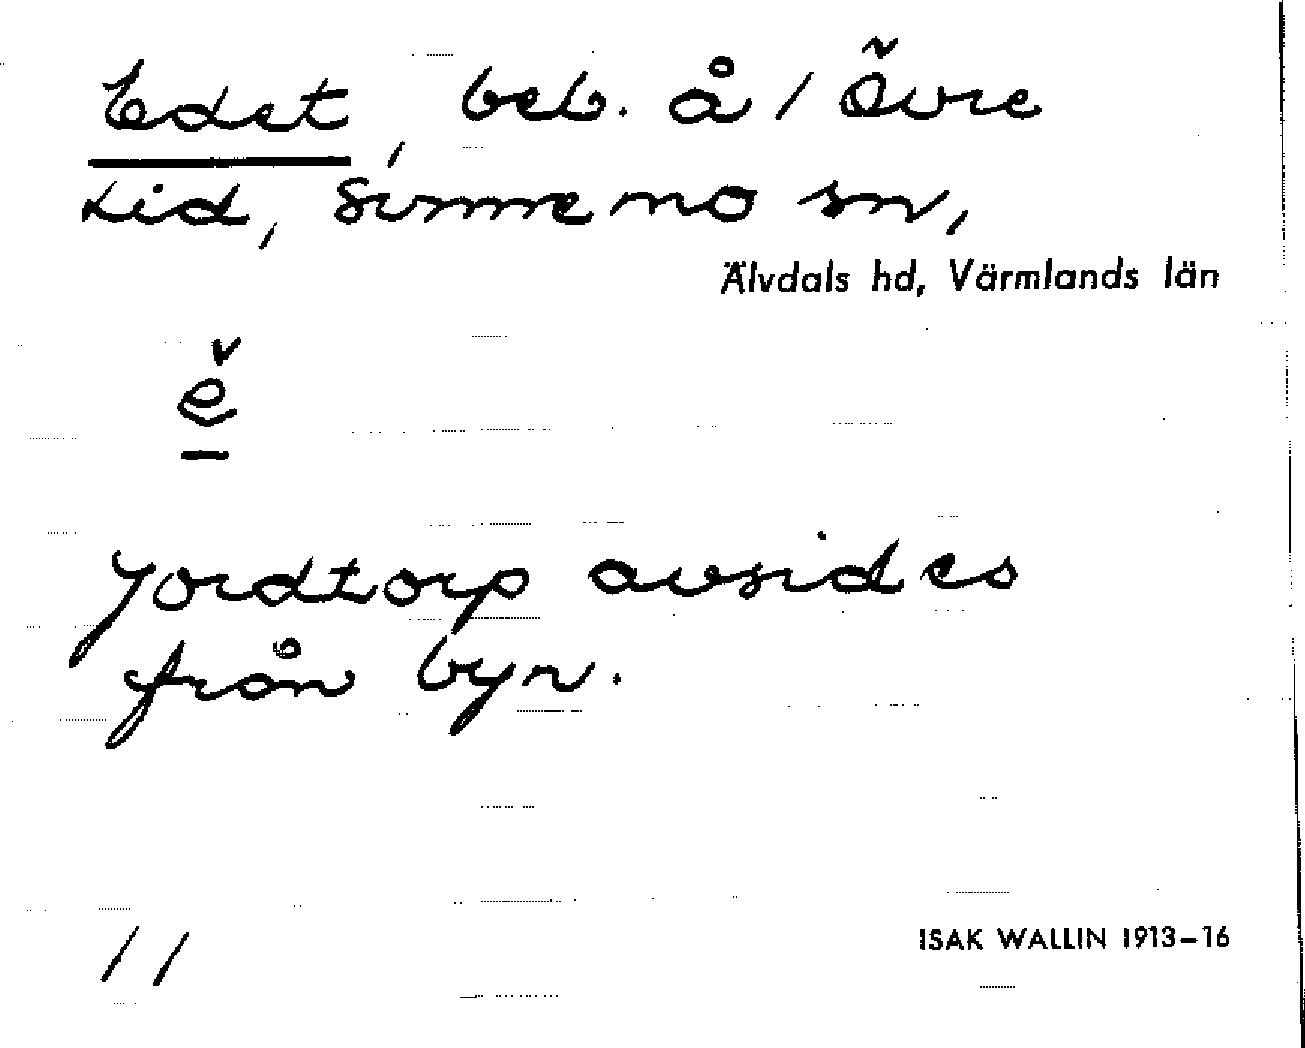 Edet, beb. å / Övre
Lid, Sunnemo sn,
Älvdals hd, Värmlands län
ě
Jordtorp avsides
från byn.
//
ISAK WALLIN 1913–16